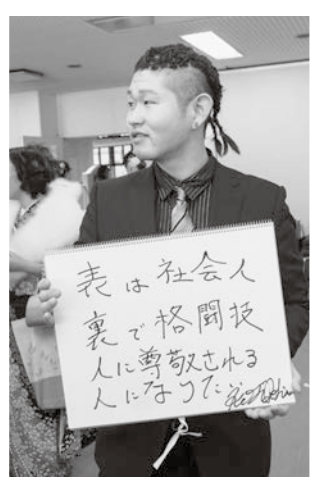 表は社会人
裏で格闘技
人に尊敬される
人になりたい